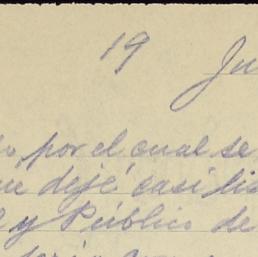 19 Ju
o por el cual se
ue dejé casi lis
l y Público de